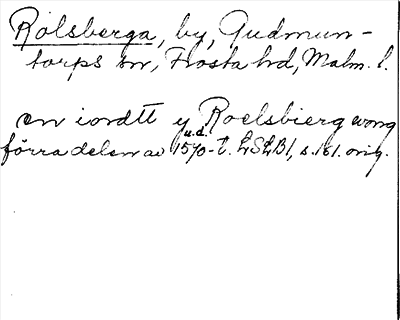 Rolsberga, by, Gudmun-
torps sn, Frosta hd, Malm. l.
en iordtt y Roelsbierg wong
u.d.
förra delen av 1570-t. LSLB1, s. 161. orig.